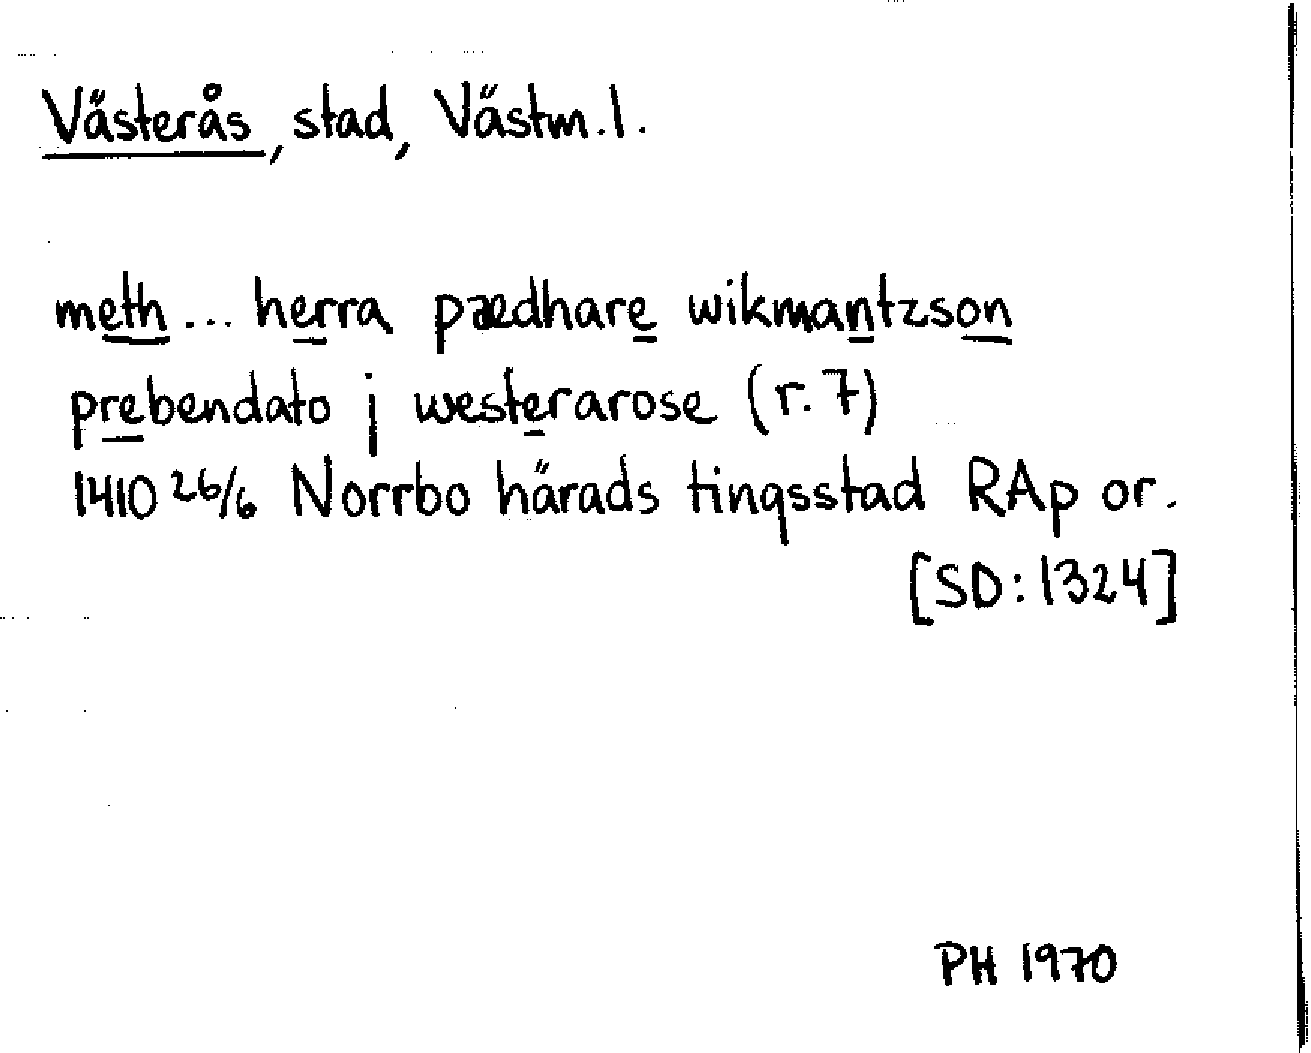 Västerås, stad, Västm.l.
meth... herra pædhare wikmantzson
prebendato j westerarose (r. 7)
1410 26/6 Norrbo härads tingsstad RAp or.
[SD: 1324]
PH 1970